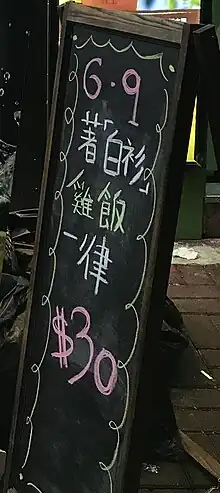 6.9
著「白衫」
雞飯
一律
$30